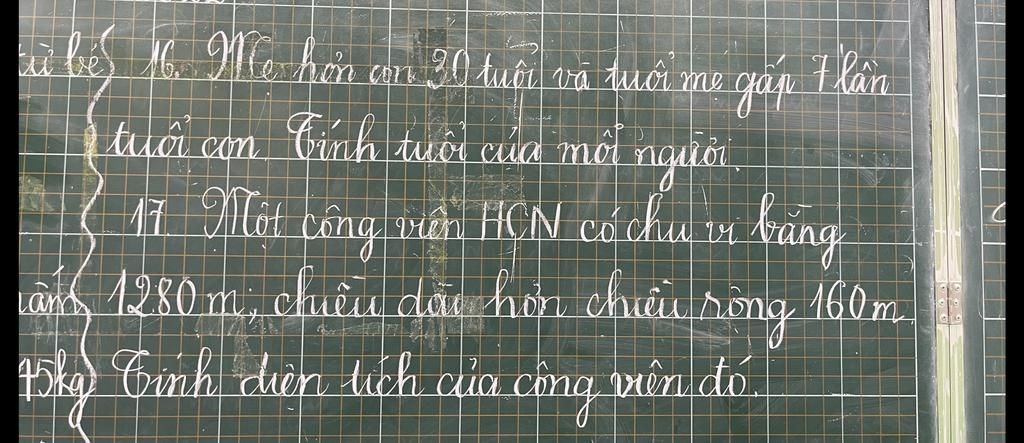 từ bé
16. Mẹ hơn con 30 tuổi và tuổi mẹ gấp 7 lần
tuổi con. Tính tuổi của mỗi người.
17. Một công viên HCN có chu vi bằng
1280 m, chiều dài hơn chiều rộng 160 m.
45kg
Tính diện tích của công viên đó.